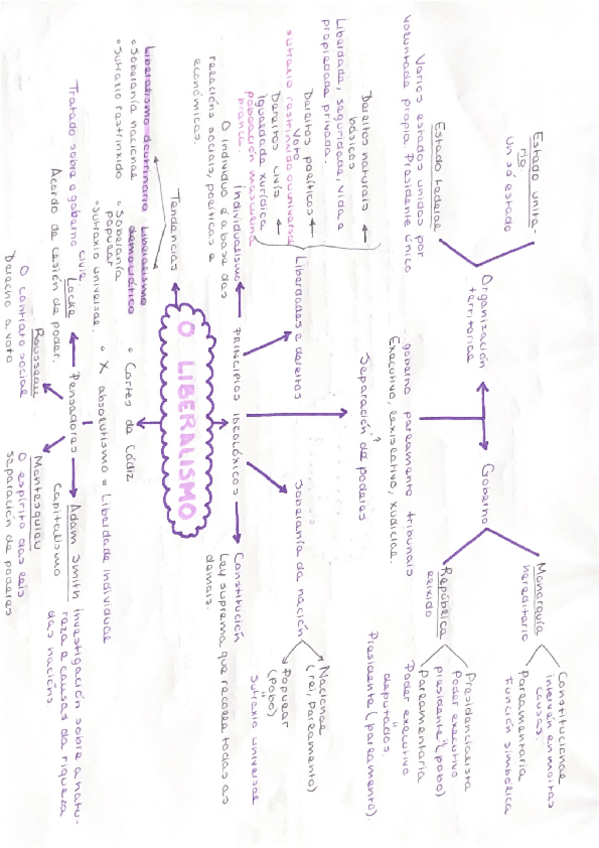 Estado unita-
rio
Un só estado
Estado federal
Varios estados unidos por
voluntade propia Presidente único
Organización
territorial
Goberno
Monarquía
hereditario
Constitucional
interven en moitas
causas.
Parlamentaria
Función simbólica
República
elixido
Presidencialista
Poder executivo
presidente "(pobo)
Parlamentaria
Poder executivo
"
deputados.
Presidente (parlamento).
goberno parlamento tribunais
Executivo, lexislativo, xudicial.
Separación de poderes
Dereitos naturais
básicos
Liberdade, seguridade, vida e
propiedade privada.
Dereitos políticos
Voto
sufraxio restrinxido ou universal
Dereitos civís
igualdade xurídica
poboación masculina
branca.
Liberdades e dereitos
Soberanía da nación
Nacional
(rei, parlamento)
Popular
(pobo)
"
sufraxio universal
Individualismo
O individuo é a base das
relacións sociais, políticas e
económicas.
PRINCIPIOS IDEOLÓXICOS
Constitución
Ley suprema que recolle todas as
demais.
O LIBERALISMO
Tendencias
Liberalismo doutrinario
Soberanía nacional
Sufraxio restrinxido
Liberalismo
democrático
Soberanía
popular
Sufraxio universal.
Cortes de Cádiz
X absolutismo = Liberdade individual
Pensadores
Locke
Tratado sobre o goberno civil
Acordo de cesión de poder.
Rousseau
O contrato social
Derecho a voto
Montesquieu
O espírito das leis
separación de poderes
Adam Smith
Capitalismo
investigación sobre a natu-
raza e causas da riqueza
das nacións.